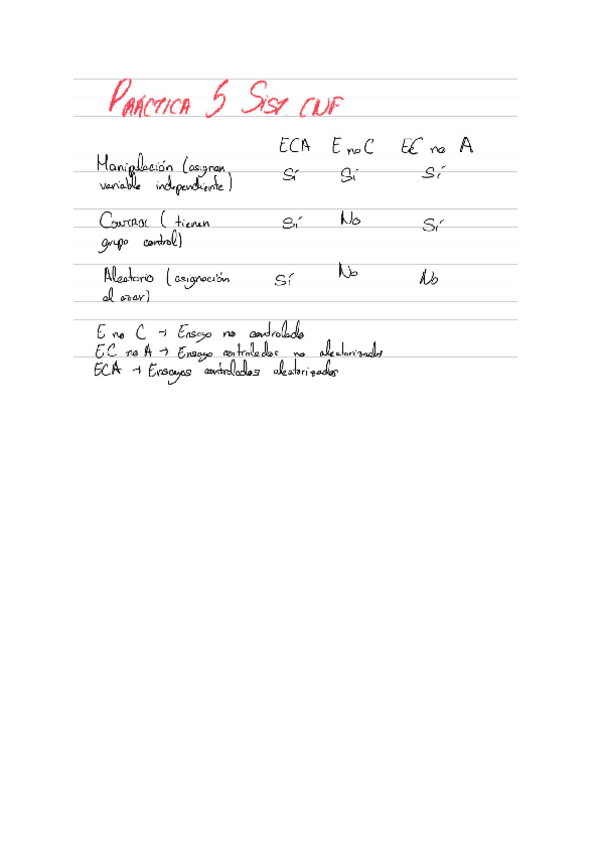 PRÁCTICA 5 SIST CNF
ECA E no C EC no A
Manipulación (asignan
variable independiente)
Sí Sí Sí
CONTROL (tienen
grupo control)
Sí No Sí
Aleatorio (asignación
al azar)
Sí No No
E no C → Ensayo no controlado
EC no A → Ensayo controlados no aleatorizados
ECA → Ensayos controlados aleatorizados